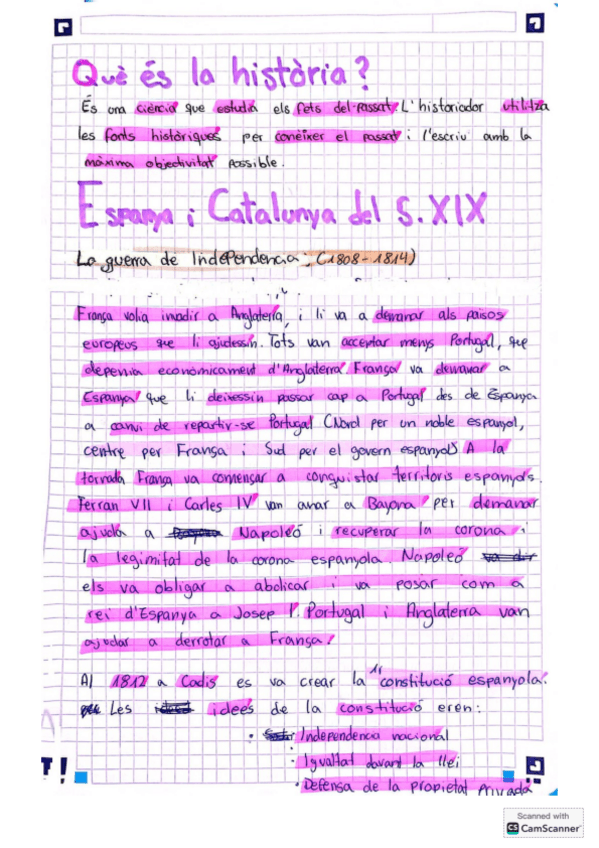 Què és la història?
És una ciència que estudia els fets del passat. L'historiador utilitza
les fonts històriques per conèixer el passat i l'escriu amb la
màxima objectivitat possible.
Espanya i Catalunya del S.XIX
La guerra de Independencia: (1808-1814)
França volia invadir a Anglaterra, i li va a demanar als països
europeus que li ajudessin. Tots van acceptar menys Portugal, que
depenia econòmicament d'Anglaterra. França va demanar a
Espanya que li deixessin passar cap a Portugal des de Espanya
a canvi de repartir-se Portugal (Nord per un noble espanyol,
centre per França i Sud per el govern espanyol). A la
tornada França va començar a conquistar territoris espanyols.
Ferran VII i Carles IV van anar a Bayona per demanar
ajuda a Napoleó i recuperar la corona i
la legimitat de la corona espanyola. Napoleó
els va obligar a abdicar i va posar com a
rei d'Espanya a Josep I. Portugal i Anglaterra van
ajudar a derrotar a França.
Al 1812 a Cadis es va crear la 1ª constitució espanyola.
Les idees de la constitució eren:
· Independencia nacional
· Igualtat davant la llei
· Defensa de la propietat privada
T!
Scanned with
CS CamScanner